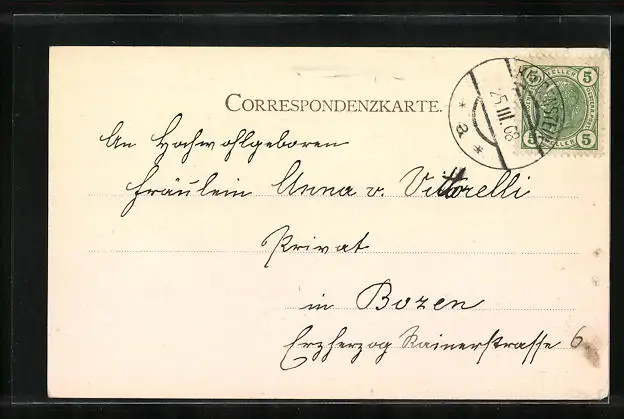 CORRESPONDENZKARTE.
An Hochwohlgeboren
Fräulein Anna v. Vittorelli
Privat
in Bozen
Erzherzog Rainerstrasse 6
25.III.08
* a *
5 5
HELLER
5 5
HELLER